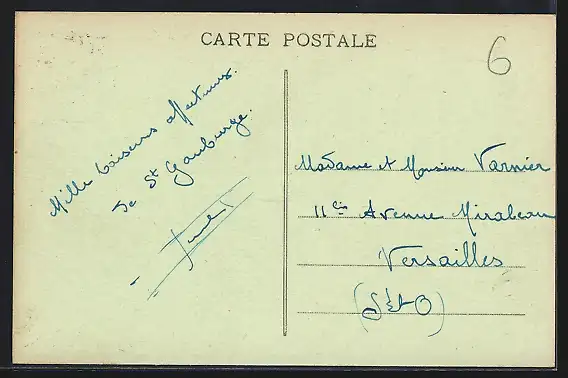 CARTE POSTALE
6
Mille baisers affectueux
de St Gauburge.
Madame et Monsieur Varnier
11 bis Avenue Mirabeau
Versailles
(S & O)